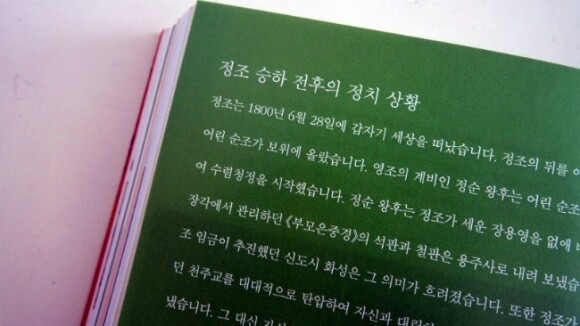 정조 승하 전후의 정치 상황
정조는 1800년 6월 28일에 갑자기 세상을 떠났습니다. 정조의 뒤를
어린 순조가 보위에 올랐습니다. 영조의 계비인 정순 왕후는 어린 순조
여 수렴청정을 시작했습니다. 정순 왕후는 정조가 세운 장용영을 없애
장각에서 관리하던 《부모은중경》의 석판과 철판은 용주사로 내려 보냈습
조 임금이 추진했던 신도시 화성은 그 의미가 흐려졌습니다. 또한 정조가
던 천주교를 대대적으로 탄압하여 자신과
냈습니다. 그 대신